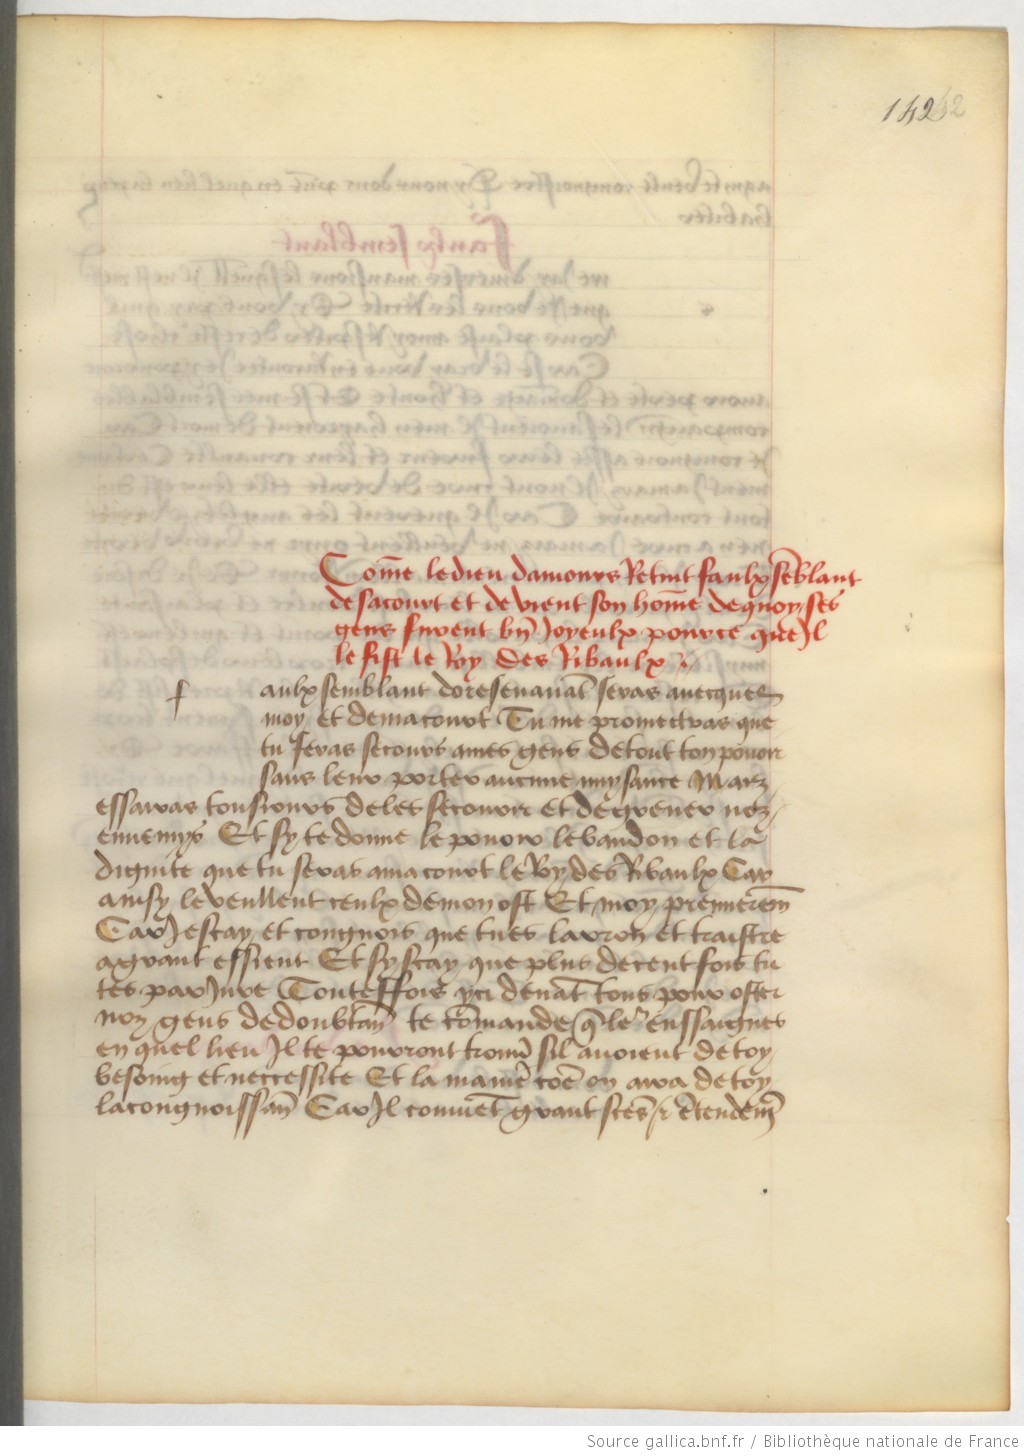 142 62
Com̄e le dieu damours Retint faulx sēblant
de sa court et devient son hōme de quoy ses
gens furent bn̄ Joyeulx pource que Jl
le fist le Roy des Ribaulx
f aulx semblant doresenauāt seras auecques
moy et de ma court Tu me promectras que
tu feras secours a mes gens de tout ton pouoir
sans leur porter aucune nuysance Mais
essairas tousiours de les secourir et de greuer noz
ennemys Et sy te donne le pouoir le bandon et la
dignite que tu seras a ma court le Roy des Ribaulx Car
ainsy le veullent ceulx de mon ost Et moy premierem̄
Car Je scay et congnois que tu es larron et traistre
a grant essient Et sy scay que plus de cent fois tu
tes pariure Touteffois yci deuāt tous pour oster
noz gens de doubtan̄ te cōmande q̄ le enssaignes
en quel lieu Jl te pourront trouū sil auoient de toy
besoing et neccessite Et la manie͂ cōe on aira de toy
la congnoissan̄ Car Jl conuiēt grant scēs et ētendem̄
Source gallica.bnf.fr / Bibliothèque nationale de France